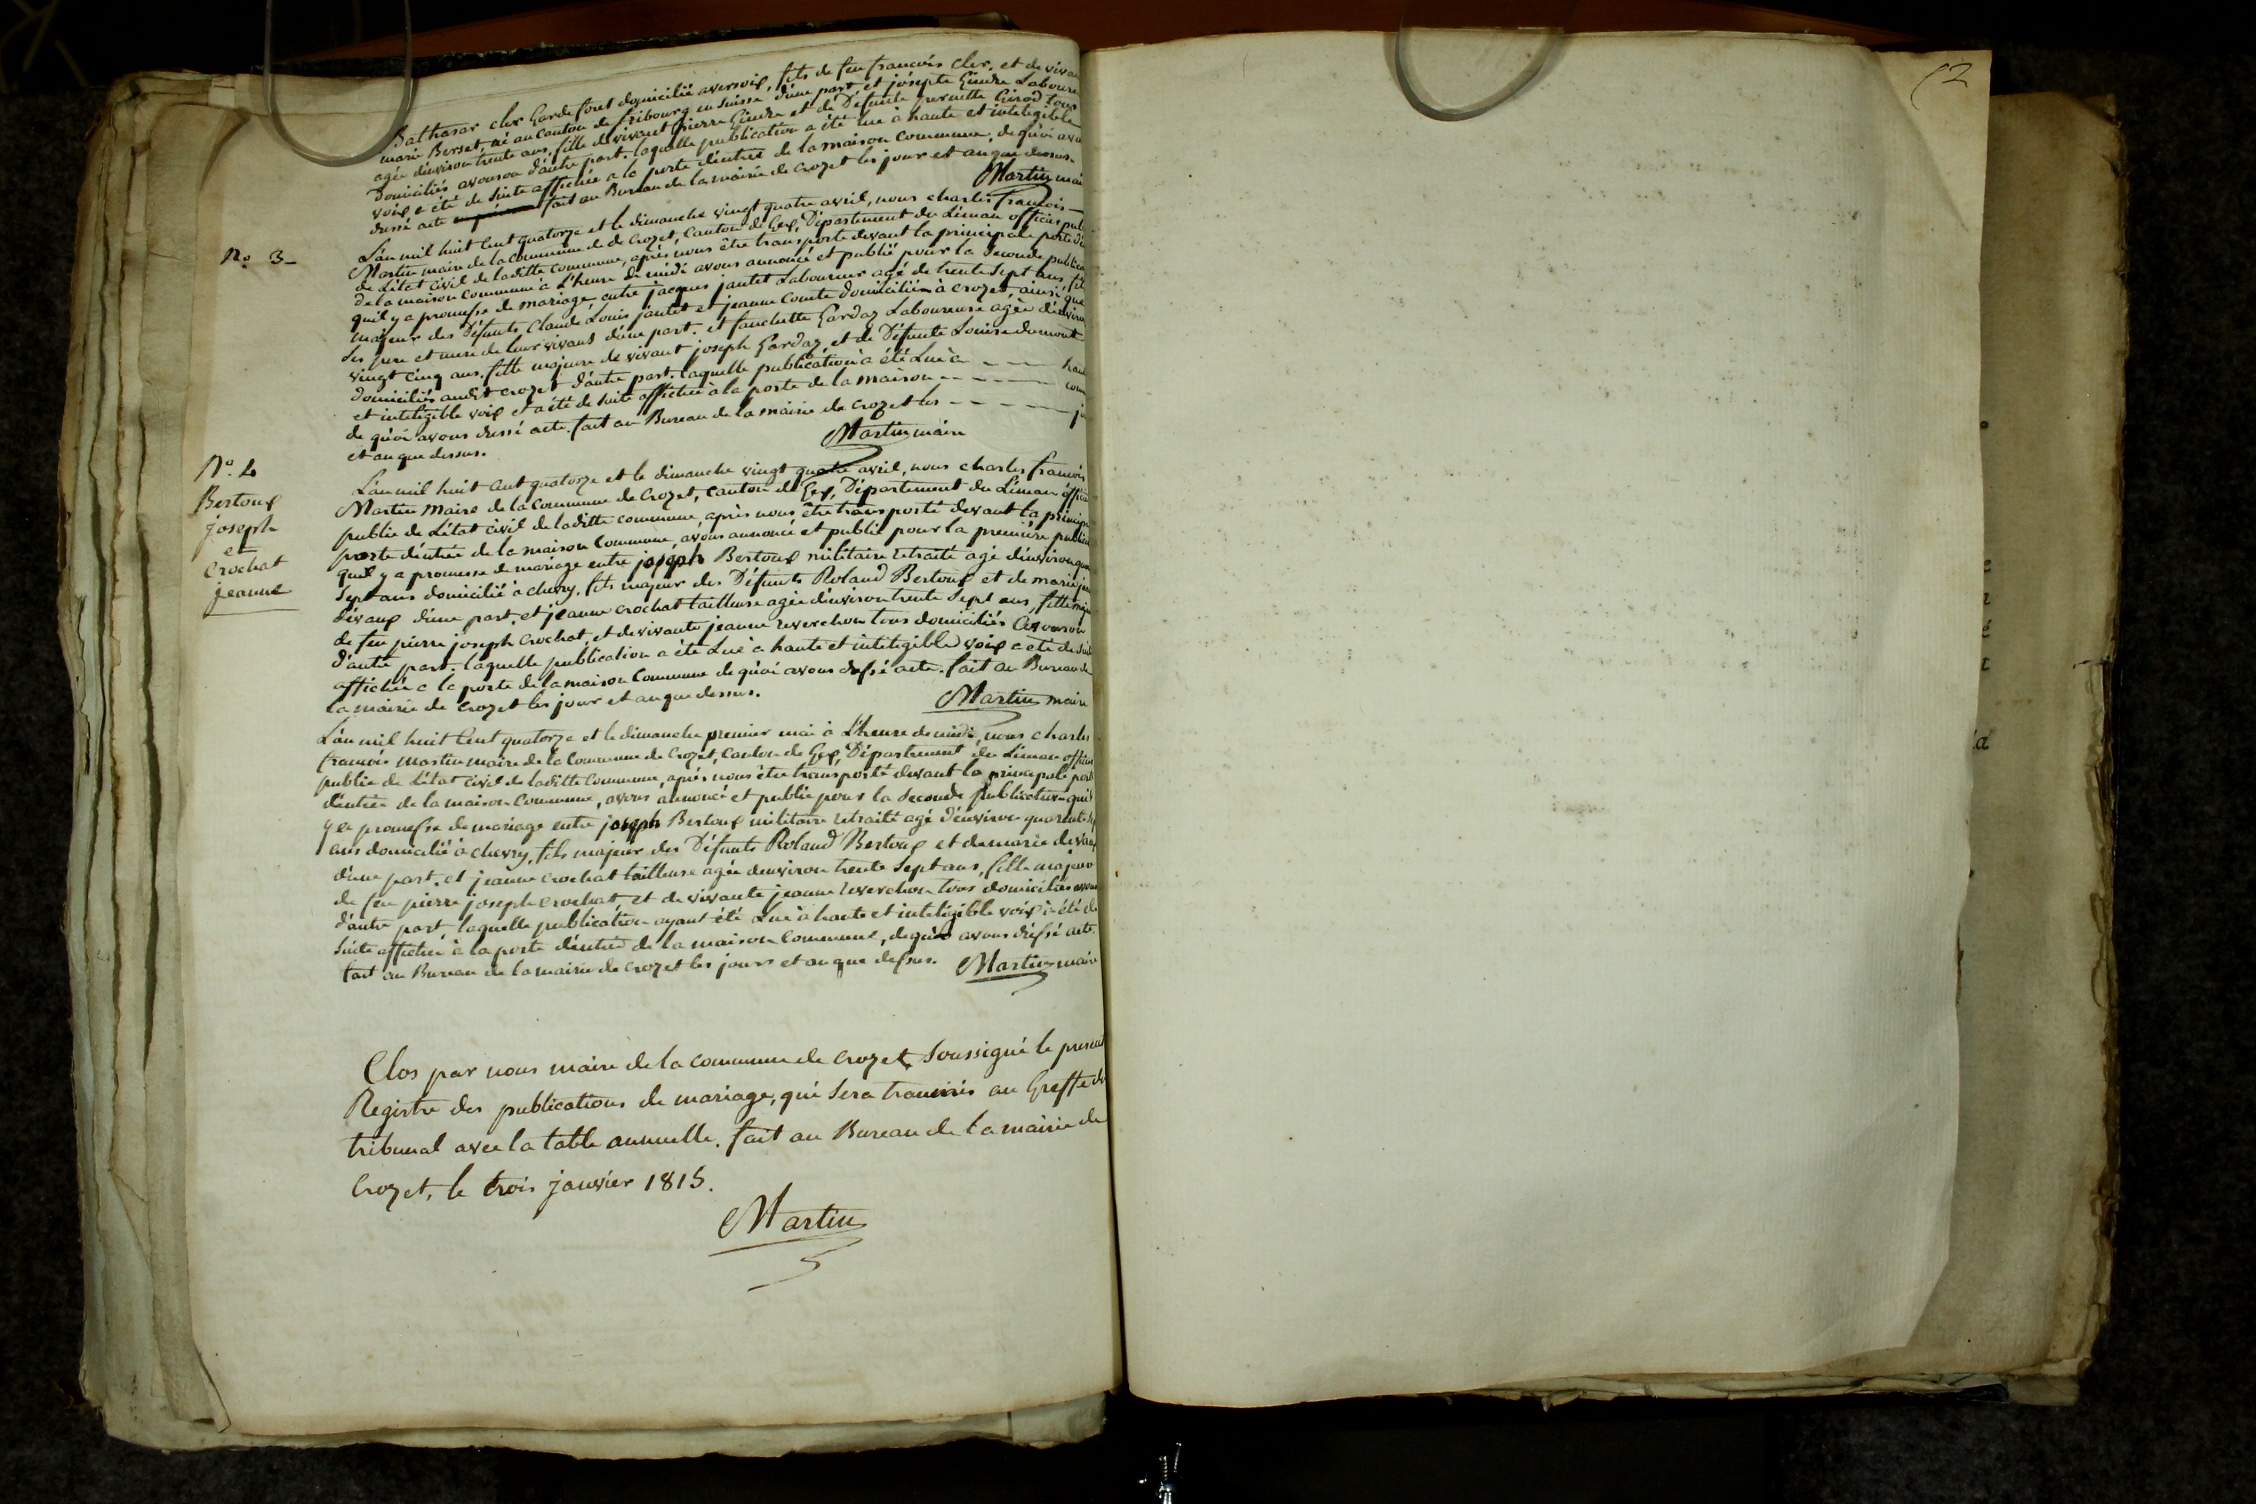 Balthasar cler Garde foret domicilié aversoix, fils de feu francois cler, et de vivan
marie Berset né au canton de fribourg en Suisse d'une part, et josepte Gindre Laboure
agée d'environ trente ans, fille de vivant pierre Gindre et de Défunte pernette Girod tous
Domiciliés avouson d'autre part. laquelle publication a été lue à haute et inteligible
voix a été de suite affichée a la porte d'entrée de la maison commune, de quoi avo
dressé acte fait au Bureau de la mairie de crozet les jour et an que dessus.
Martin mai
No. 3-
L'an mil huit Cent quatorze et le dimanche vingt quatre avril, nous charles francois
Martin maire de la commune de crozet, Canton de Gex, Département du Léman officier pub
de L'état civil de laditte commune, après nous être transporté devant la principale porte d'e
de la maison commune à L'heure de midi avons annoncé et publié pour la seconde publica
qu'il y a promesse de mariage entre jacques jantet Laboureur agé de trente sept ans, fil
majeur des Défunts Claude Louis jantet et jeanne Comte domiciliés à crozet, ainsi que
ses pere et mere de leur vivant d'une part. et fanchette Gardaz Laboureuse agée d'environ
vingt cinq ans, fille majeure de vivant joseph Gardaz, et de Défunte Louise dumont
domiciliés audit crozet d'autre part, laquelle publication a été Lue à - - - hau
et inteligible voix et a été de suite affichée à la porte de la maison - - - - - com
de quoi avons dressé acte. fait au Bureau de la mairie de crozet les - - - - - jo
et an que dessus.
Martin maire
No. 4
Bertoux
joseph
et
Crochat
jeanne
L'an mil huit Cent quatorze et le dimanche vingt quatre avril, nous charles francois
Martin Maire de la Commune de Crozet, Canton de Gex, Département du Léman offici
public de L'état civil de laditte commune, après nous être transporté devant la princip
porte d'entrée de la maison Commune, avons annoncé et publié pour la première publica
qu'il y a promesse de mariage entre joseph Bertoux militaire retraité agé d'environ quar
sept ans domicilié à chevry, fils majeur des Défunts Roland Bertoux et de marie
dévaux d'une part, et jeanne crochat tailleuse agée d'environ trente sept ans, fille maje
de feu pierre joseph Crochat, et de vivante jeanne reverchon tous domiciliés avouson
d'autre part. laquelle publication a été Lue à haute et inteligible voix a été de sui
affichée a la porte de la maison Commune de quoi avons dressé acte. fait au Bureau de
La mairie de crozet les jour et an que dessus.
Martin maire
L'an mil huit Cent quatorze et le dimanche premier mai à L'heure de midi, nous charles
francois martin maire de la Commune de Crozet, Canton de Gex, Département du Léman officier
public de L'état civil de laditte Commune, après nous être transporté devant la principale porte
d'entrée de la maison Commune, avons annoncé et publié pour la seconde publication qu'il
y a promesse de mariage entre joseph Bertoux militaire retraité agé d'environ quarante sep
ans domicilié à chevry, fils majeur des Défunts Roland Bertoux et de marie devaux
d'une part, et jeanne crochat tailleuse agée d'environ trente sept ans, fille majeure
de feu pierre joseph crochat et de vivante jeanne reverchon tous domiciliés avous
d'autre part, laquelle publication ayant été Lue à haute et inteligible voix a été de
suite affichée à la porte d'entrée de la maison commune, de quoi avons dressé acte.
fait au Bureau de la mairie de crozet les jours et an que dessus.
Martin maire
Clos par nous maire de la commune de crozet, soussigné le present
Registre des publications de mariage, qui sera transmis au Greffe du
tribunal avec la table annuelle. fait au Bureau de la mairie de
Crozet, le trois janvier 1815.
Martin